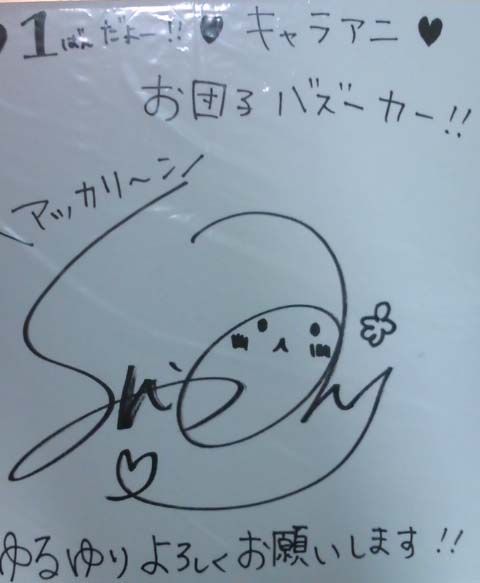 ♥1ばんだよー!!♥ キャラアニ♥
お団子バズーカー!!
アッカリ〜ン!
ゆるゆりよろしくお願いします!!